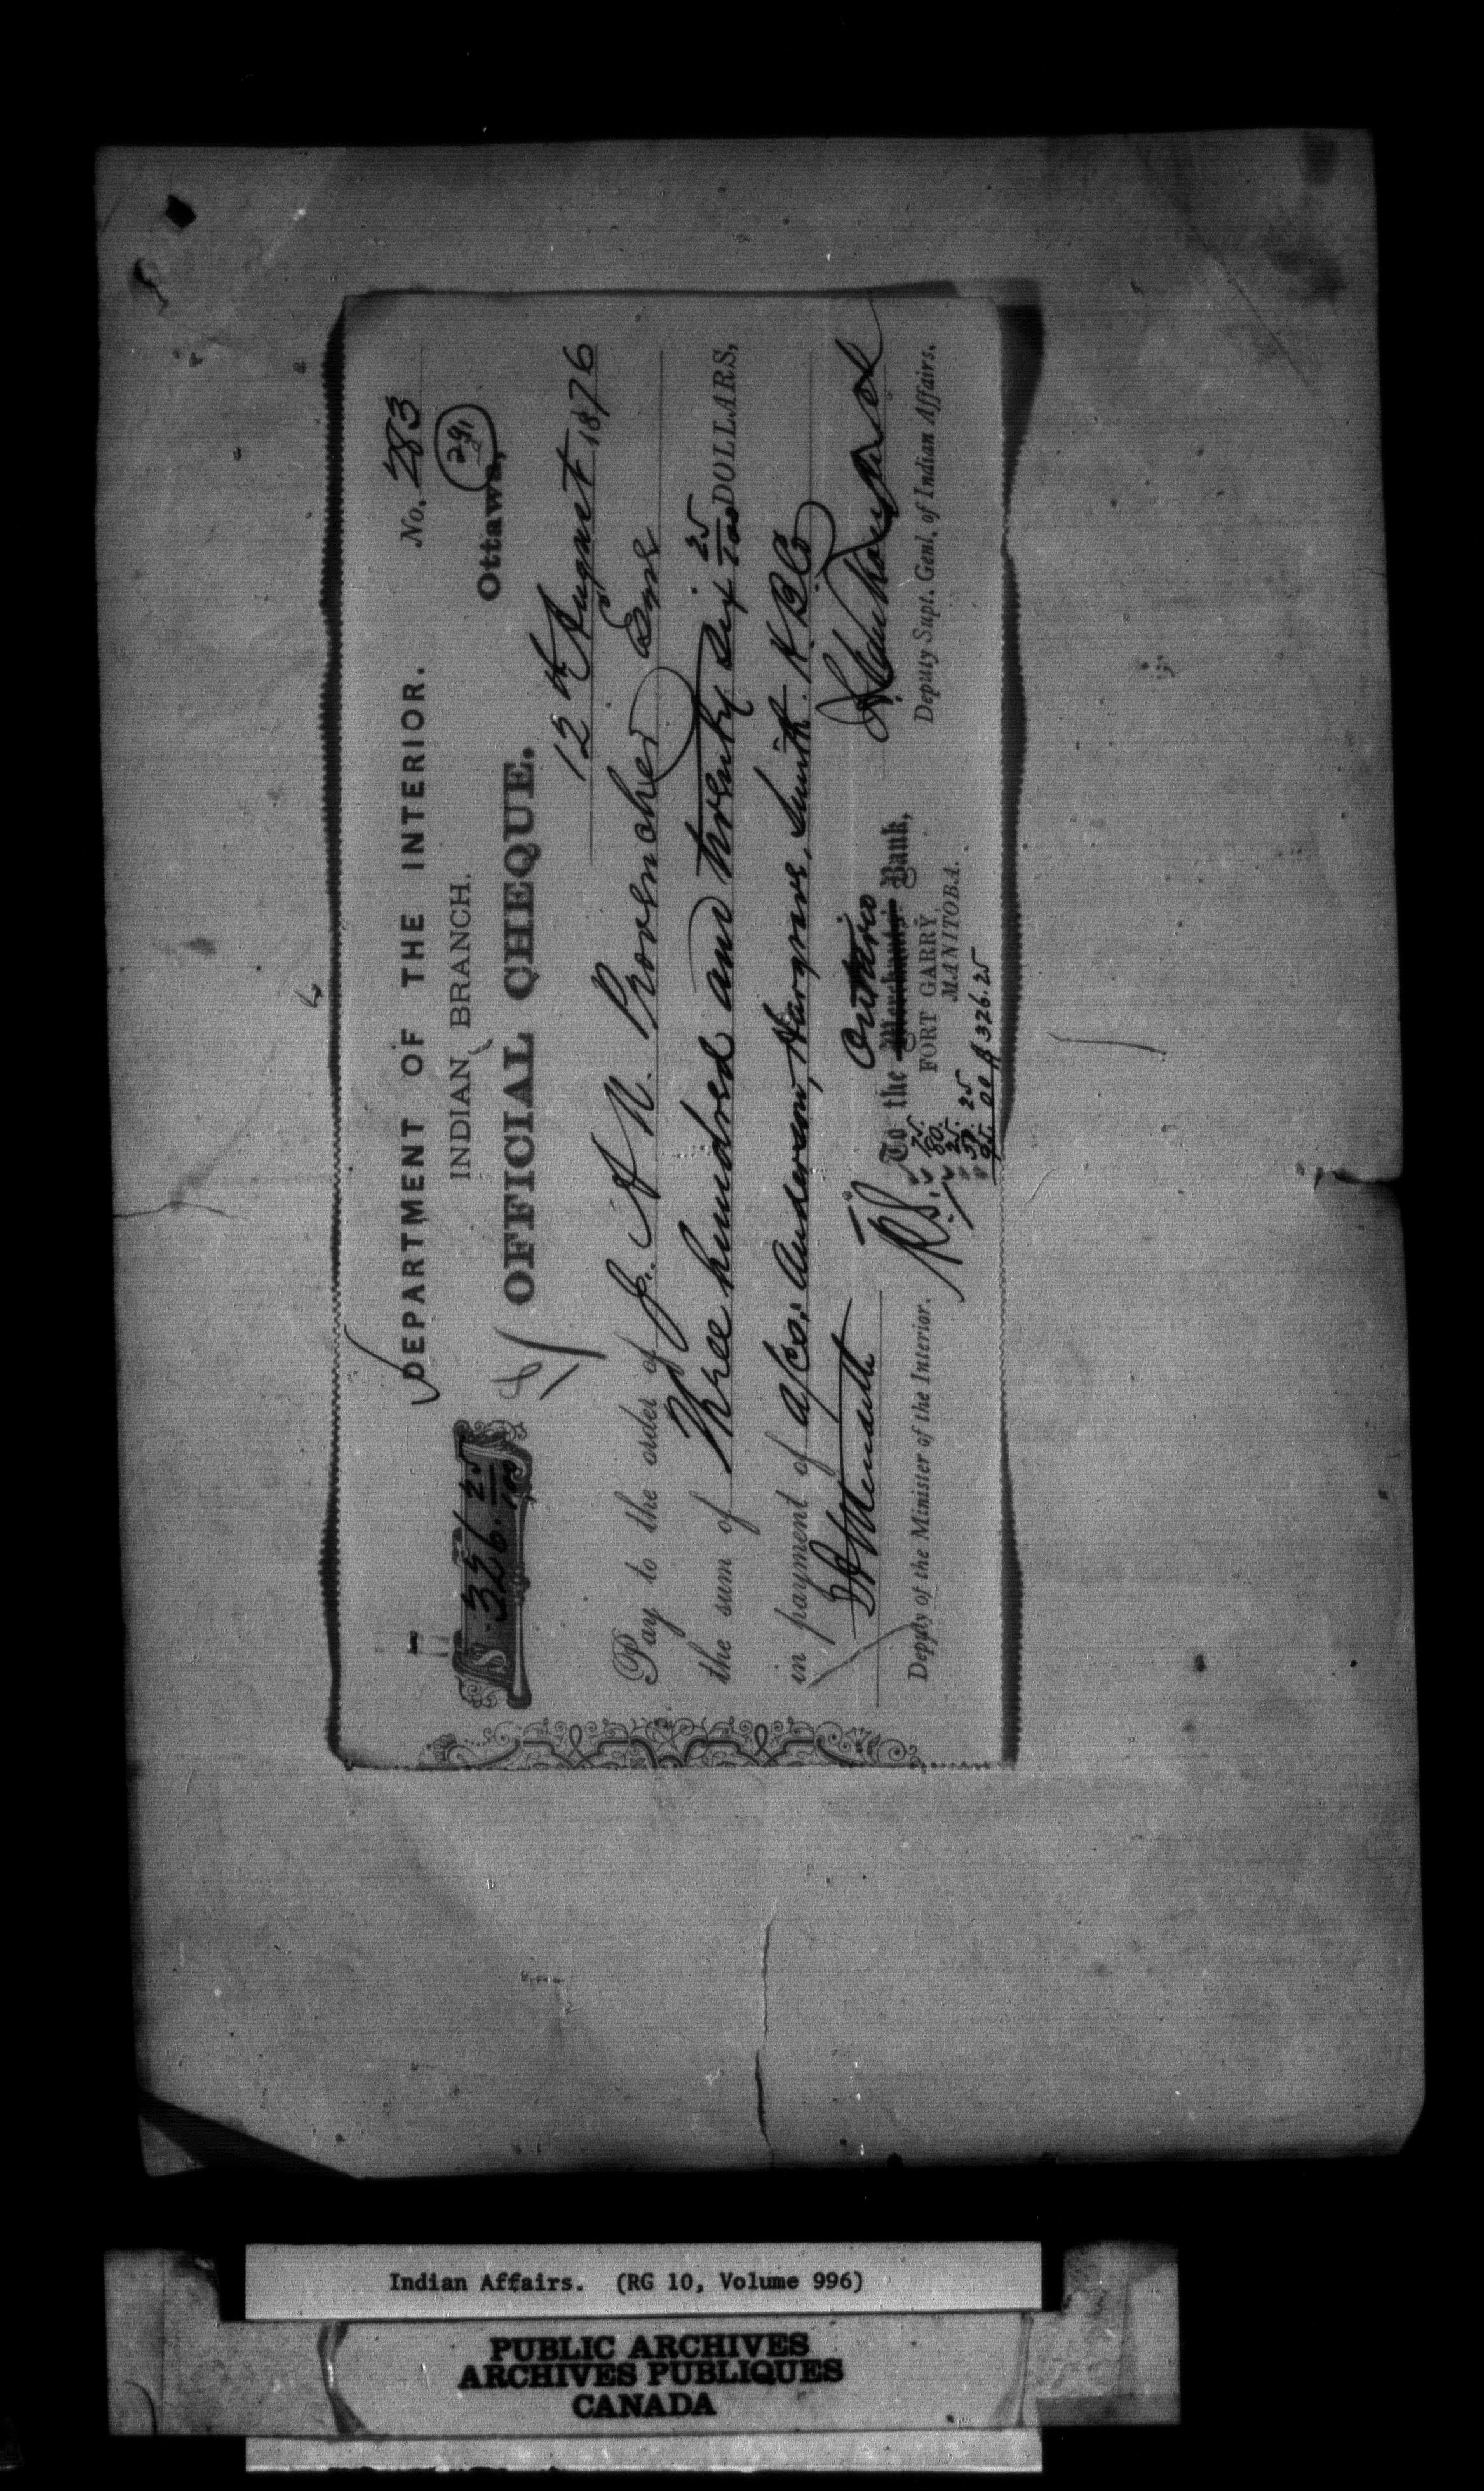 No. 283
DEPARTMENT OF THE INTERIOR.
291
INDIAN BRANCH.
Ottawa,
$ 326. 25/100
OFFICIAL CHEQUE.
12th August 1876
Pay to the order of J. A N. Provencher Esqr
the sum of Three hundred and twenty six 25/100 DOLLARS,
in payment of a/cs. Anderson, Hargrave, Smith. H. B. Co
Ontario
To the Merchants' Bank,
FORT GARRY,
MANITOBA.
Deputy of the Minister of the Interior.
Deputy Supt. Genl. of Indian Affairs.
RS.
75.
80.
25.
51. 25
95. 00 $ 326.25
Indian Affairs. (RG 10, Volume 996)
PUBLIC ARCHIVES
ARCHIVES PUBLIQUES
CANADA